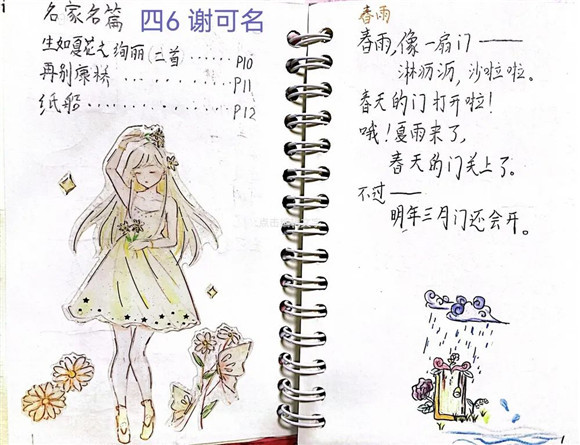 名家名篇
四6 谢可名
生如夏花之绚丽(二首)......P10
再别康桥..........P11
纸船............P12
春雨
春雨,像一扇门——
淋沥沥,沙啦啦。
春天的门打开啦!
哦!夏雨来了,
春天的门关上了。
不过——
明年三月门还会开。
1